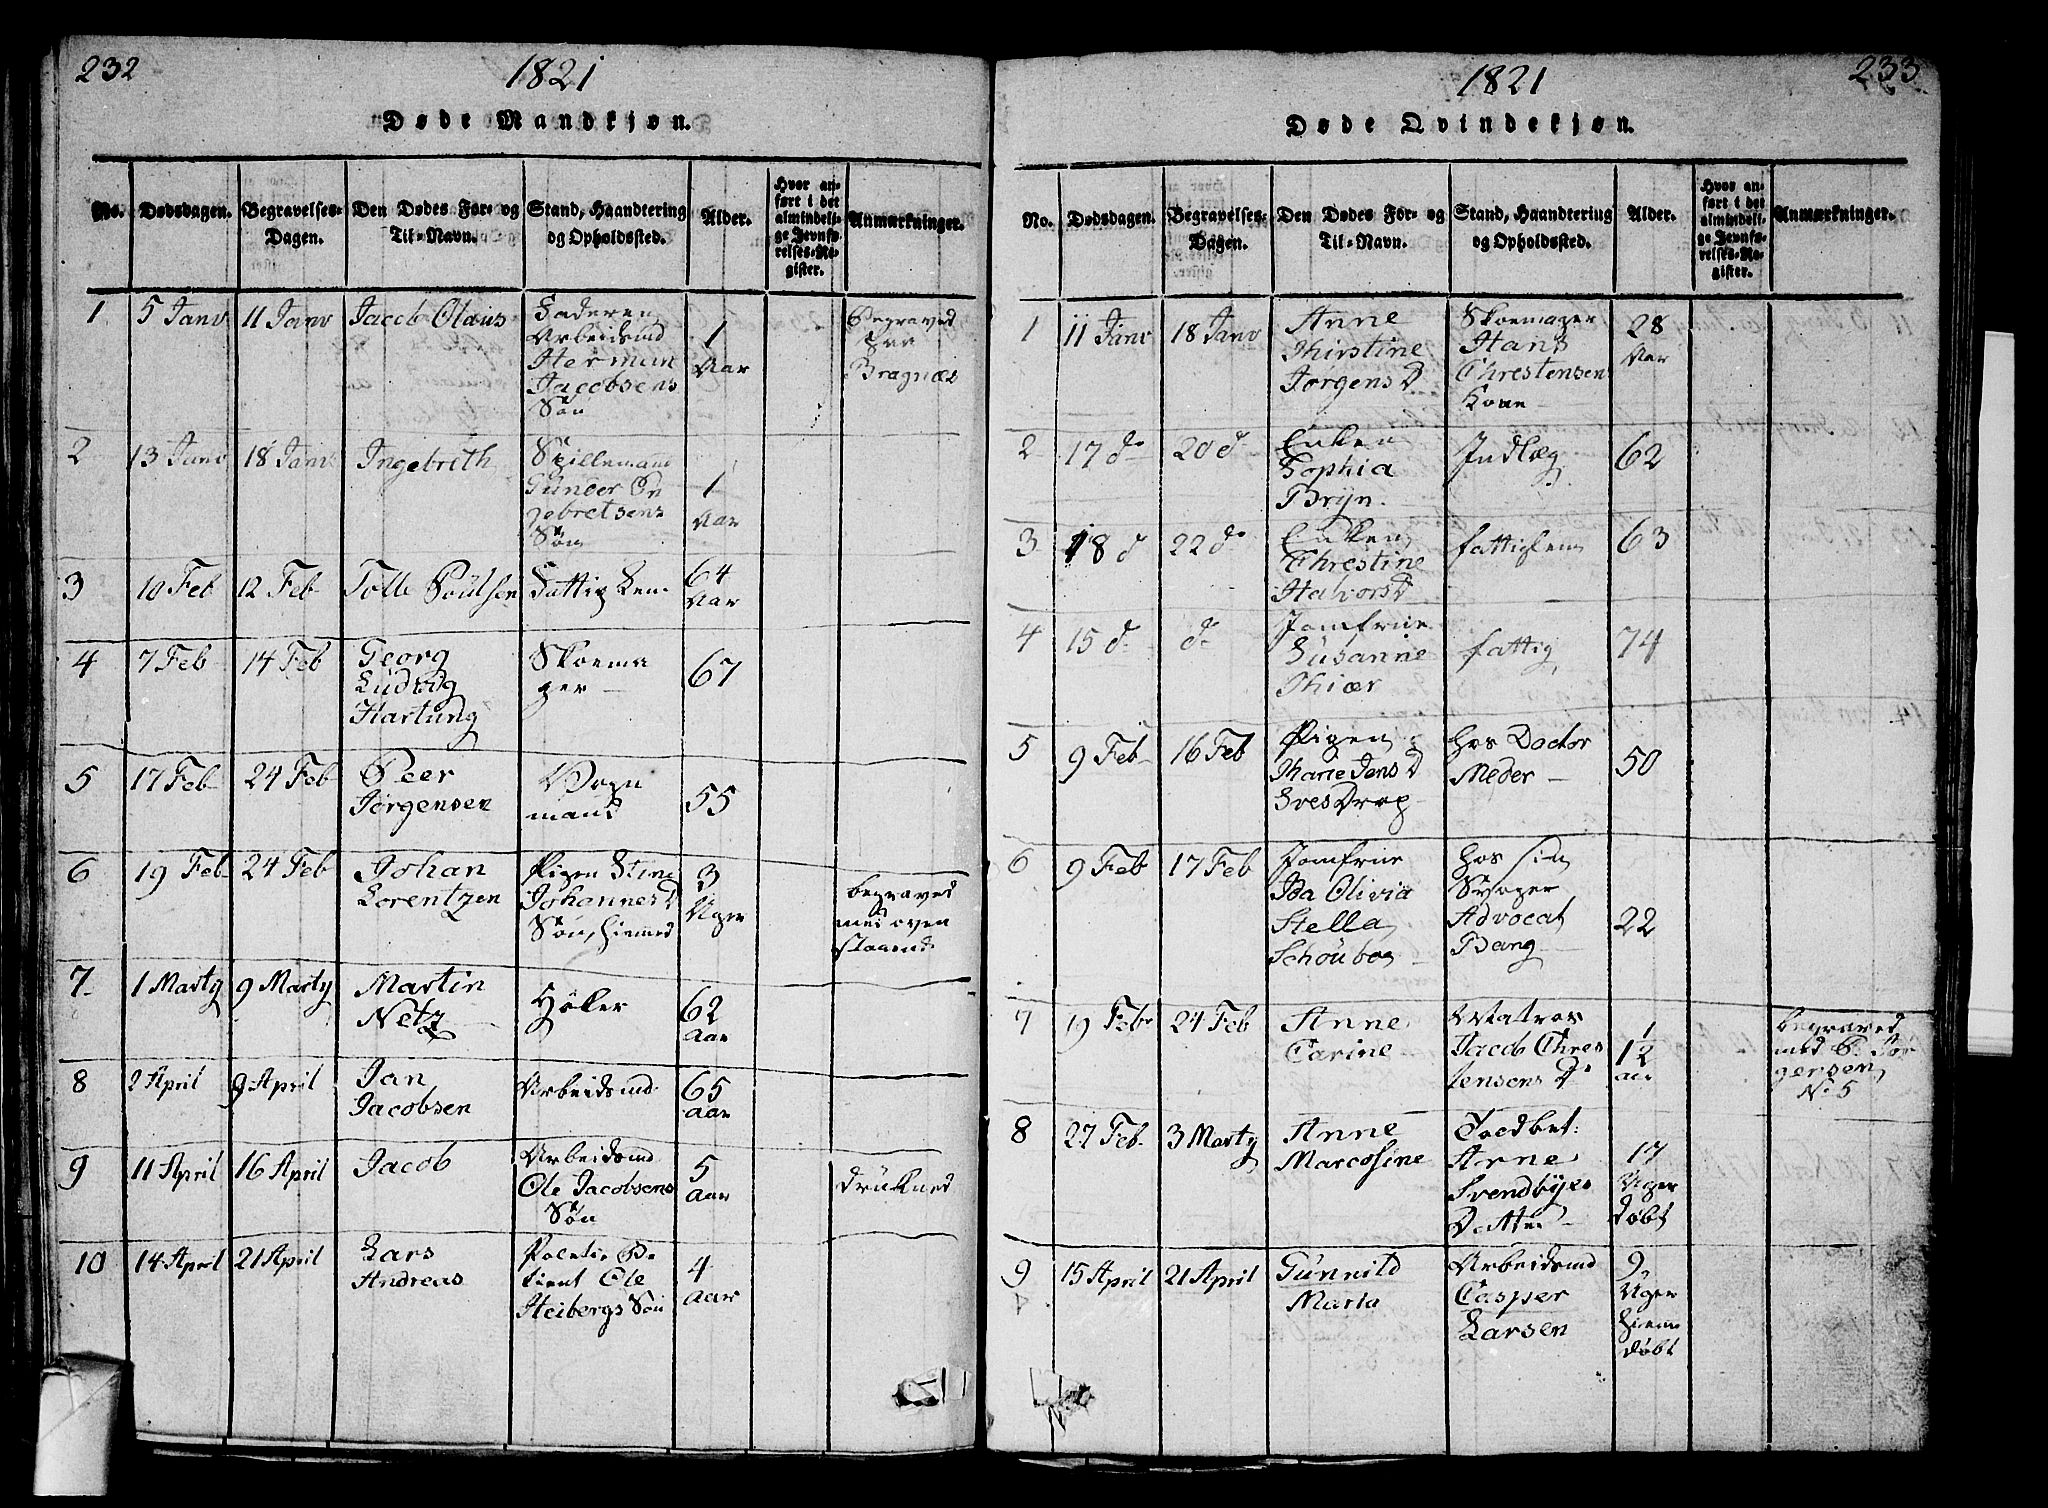 232
1821
Døde Mandkjøn.
No.
Dødsdagen.
Begravelses-
Dagen.
Den Dødes For- og
Til-Navn.
Stand, Haandtering
og Opholdssted.
Alder.
Hvor an-
ført i det
almindeli-
ge Jevnfø-
relses-Re-
gister.
Anmærkninger.
1
5 Janv
11 Janv
Jacob Olaus
Faderen
Arbeidsmd
Herman
Jacobsens
Søn
1
Aar
Begraved
paa
Bragnæs
2
13 Janv
18 Janv
Ingebreth
Spillemand
Gunder En
gebretsens
Søn
1
Aar
3
10 Feb
12 Feb
Tolle Poulsen
Fattig Lem
64
Aar
4
7 Feb
14 Feb
Georg
Ludvig
Hartung
Skoema
ger
67
5
17 Feb
24 Feb
Peer
Jørgensen
Vogn
mand
55
6
19 Feb
24 Feb
Johan
Lorentzen
Pigen Stine
Johannes D
Søn, hiemmed
3
Uger
begraved
med oven
staaende
7
1 Marty
9 Marty
Martin
Netz
Høker
62
Aar
8
2 April
9 April
Jan
Jacobsen
Arbeidsmd
65
Aar
9
11 April
16 April
Jacob
Arbeidsmd
Ole Jacobsens
Søn
5
Aar
Drukned
10
14 April
21 April
Lars
Andreas
Politie Be
tient Ole
Heibergs Søn
4
Aar
233
1821
Døde Qvindekjøn.
No.
Dødsdagen.
Begravelses-
Dagen.
Den Dødes For- og
Til-Navn.
Stand, Haandtering
og Opholdssted.
Alder.
Hvor an-
ført i det
almindeli-
ge Jevnfø-
relses-Re-
gister.
Anmærkninger.
1
11 Janv
18 Janv
Anne
Kirstine
Jørgens D
Skoemager
Hans
Chrestensen
Kone
28
Aar
2
17 d
20 d
Enken
Sophia
Bryn
Indlæg
62
3
18 d
22 d
Enken
Chrestine
Halvors D
fattiglem
63
4
15 d
d
Jomfrue
Susanne
Thiær
fattig
74
5
9 Feb
16 Feb
Pigen
Marie Jens D
hos Doctor
Meder
50
6
9 Feb
17 Feb
Jomfrue
Ida Olivia
Stella
Schouboe
hos sin
Svoger
Advocat
Bang
22
7
19 Feb
24 Feb
Anne
Carine
Matros
Jacob Chres
tensens D
1 1/2
aar
begraved
med P. Jør
gensen
No 5
8
27 Feb
3 Marty
Anne
Marcosine
Toedbet:
Arne
Svendbyes
Datter
17
Uger
døbt
9
15 April
21 April
Gunnild
Maria
Arbeidsmd
Casper
Larsen
9
Uger
hiemme
døbt